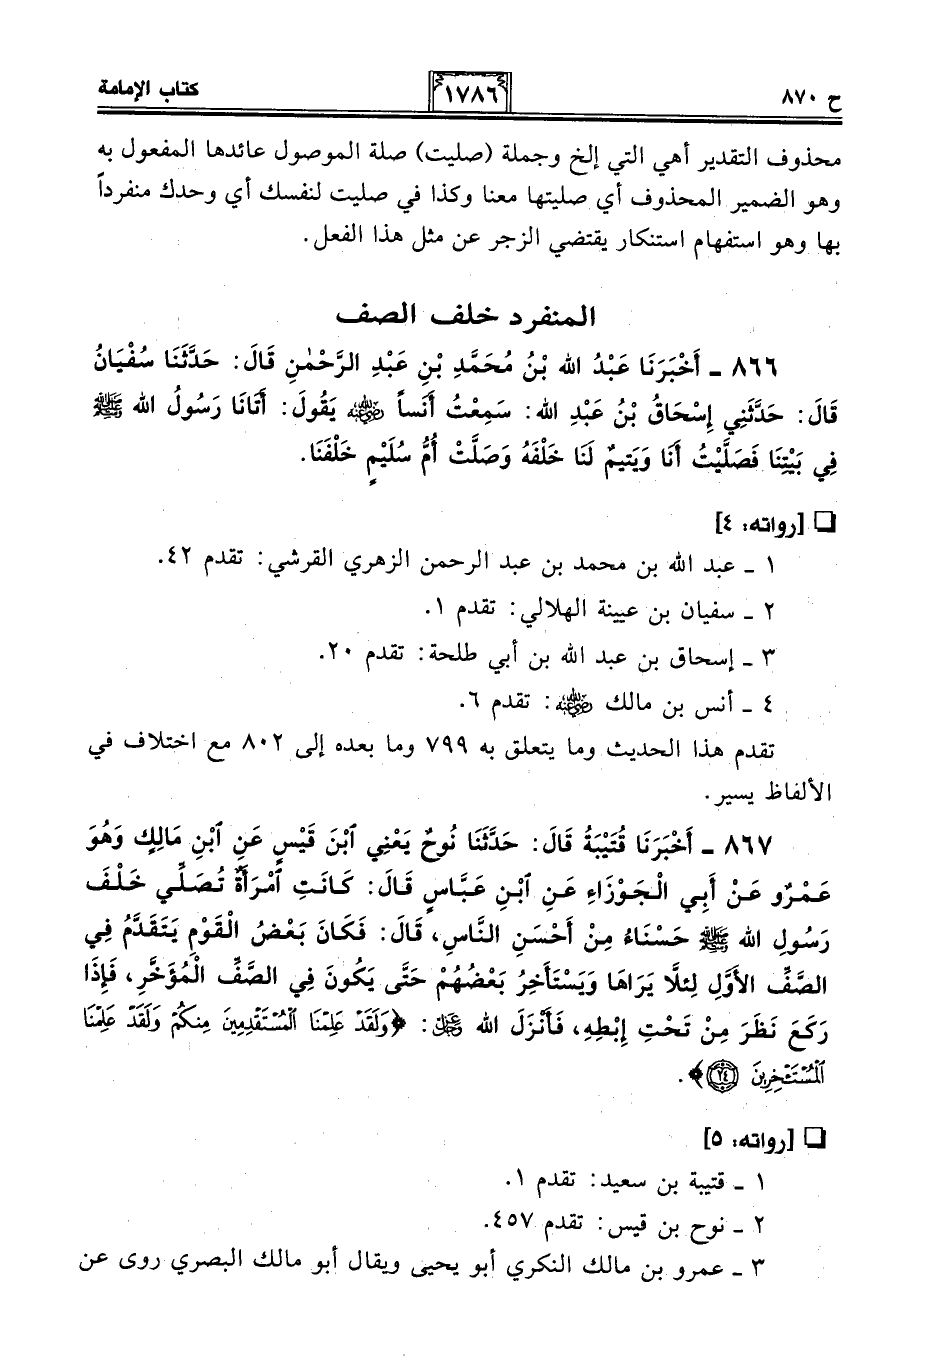 ح ٨٧٠
١٧٨٦
كتاب الإمامة
محذوف التقدير أهي التي إلخ وجملة (صليت) صلة الموصول عائدها المفعول به
وهو الضمير المحذوف أي صليتها معنا وكذا في صليت لنفسك أي وحدك منفرداً
بها وهو استفهام استنكار يقتضي الزجر عن مثل هذا الفعل.
المنفرد خلف الصف
٨٦٦ ـ أَخْبَرَنَا عَبْدُ الله بْنُ مُحَمَّدِ بْنِ عَبْدِ الرَّحْمٰنِ قَالَ: حَدَّثَنَا سُفْيَانُ
قَالَ: حَدَّثَنِي إِسْحَاقُ بْنُ عَبْدِ الله: سَمِعْتُ أَنَساً رضي الله عنه يَقُولَ: أَتَانَا رَسُولُ الله ﷺ
فِي بَيْتِنَا فَصَلَّيْتُ أَنَا وَيَتِيمٌ لَنَا خَلْفَهُ وَصَلَّتْ أُمُّ سُلَيْمٍ خَلْفَنَا.
❑ [رواته: ٤]
١ ـ عبد الله بن محمد بن عبد الرحمن الزهري القرشي: تقدم ٤٢.
٢ ـ سفيان بن عيينة الهلالي: تقدم ١.
٣ ـ إسحاق بن عبد الله بن أبي طلحة: تقدم ٢٠.
٤ ـ أنس بن مالك رضي الله عنه: تقدم ٦.
تقدم هذا الحديث وما يتعلق به ٧٩٩ وما بعده إلى ٨٠٢ مع اختلاف في
الألفاظ يسير.
٨٦٧ ـ أَخْبَرَنَا قُتَيْبَةُ قَالَ: حَدَّثَنَا نُوحٌ يَعْنِي ٱبْنَ قَيْسٍ عَنِ ٱبْنِ مَالِكٍ وَهُوَ
عَمْرٌو عَنْ أَبِي الْجَوْزَاءِ عَنِ ٱبْنِ عَبَّاسٍ قَالَ: كَانَتِ ٱمْرَأَةٌ تُصَلِّي خَلْفَ
رَسُولِ الله ﷺ حَسْنَاءُ مِنْ أَحْسَنِ النَّاسِ، قَالَ: فَكَانَ بَعْضُ الْقَوْمِ يَتَقَدَّمُ فِي
الصَّفِّ الأَوَّلِ لِئَلَّا يَرَاهَا وَيَسْتَأْخِرُ بَعْضُهُمْ حَتَّى يَكُونَ فِي الصَّفِّ الْمُؤَخَّرِ، فَإِذَا
رَكَعَ نَظَرَ مِنْ تَحْتِ إِبْطِهِ، فَأَنْزَلَ الله عز وجل: ﴿وَلَقَدْ عَلِمْنَا ٱلْمُسْتَقْدِمِينَ مِنكُمْ وَلَقَدْ عَلِمْنَا
ٱلْمُسْتَـْٔخِرِينَ ٢٤﴾.
❑ [رواته: ٥]
١ ـ قتيبة بن سعيد: تقدم ١.
٢ ـ نوح بن قيس: تقدم ٤٥٧.
٣ ـ عمرو بن مالك النكري أبو يحيى ويقال أبو مالك البصري روى عن